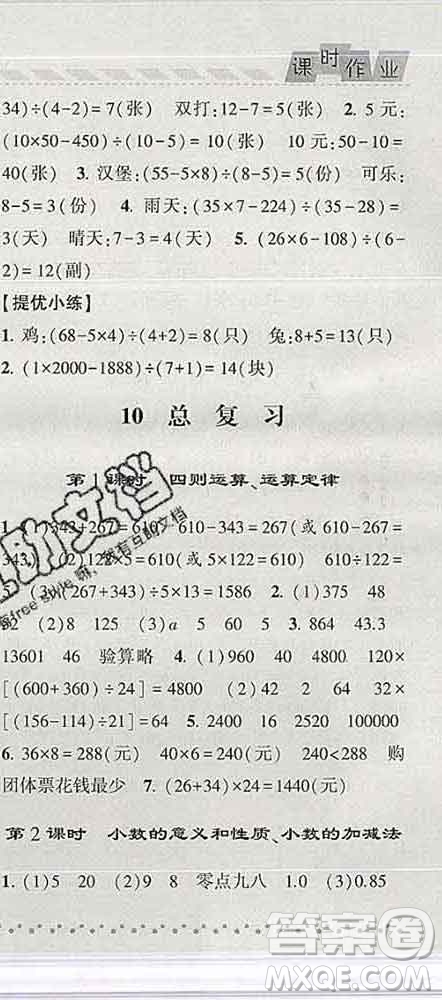 课时作业
34)÷(4-2)=7(张) 双打:12-7=5(张) 2. 5元:
(10×50-450)÷(10-5)=10(张) 10元:50-10=
40(张) 3. 汉堡:(55-5×8)÷(8-5)=5(份) 可乐:
8-5=3(份) 4. 雨天:(35×7-224)÷(35-28)=
3(天) 晴天:7-3=4(天) 5. (26×6-108)÷(6-
2)=12(副)
【提优小练】
1. 鸡:(68-5×4)÷(4+2)=8(只) 兔:8+5=13(只)
2. (1×2000-1888)÷(7+1)=14(块)
10 总复习
第1课时 四则运算、运算定律
1. (1)343+267=610 610-343=267(或610-267=
(2)122×5=610(或5×122=
(3)(267+343)×5÷5=1586 2. (1)375 48
52 (2)8 125 (3)a 5 60 5 3. 864 43.3
13601 46 验算略 4. (1)960 40 4800 120×
[(600+360)÷24]=4800 (2)42 2 64 32×
[(156-114)÷21]=64 5. 2400 16 2520 100000
6. 36×8=288(元) 40×6=240(元) 240<288 购
团体票花钱最少 7. (26+34)×24=1440(元)
第2课时 小数的意义和性质、小数的加减法
1. (1)5 20 (2)9 8 零点九八 1.0 (3)0.85
答案圈
MXQE.COM